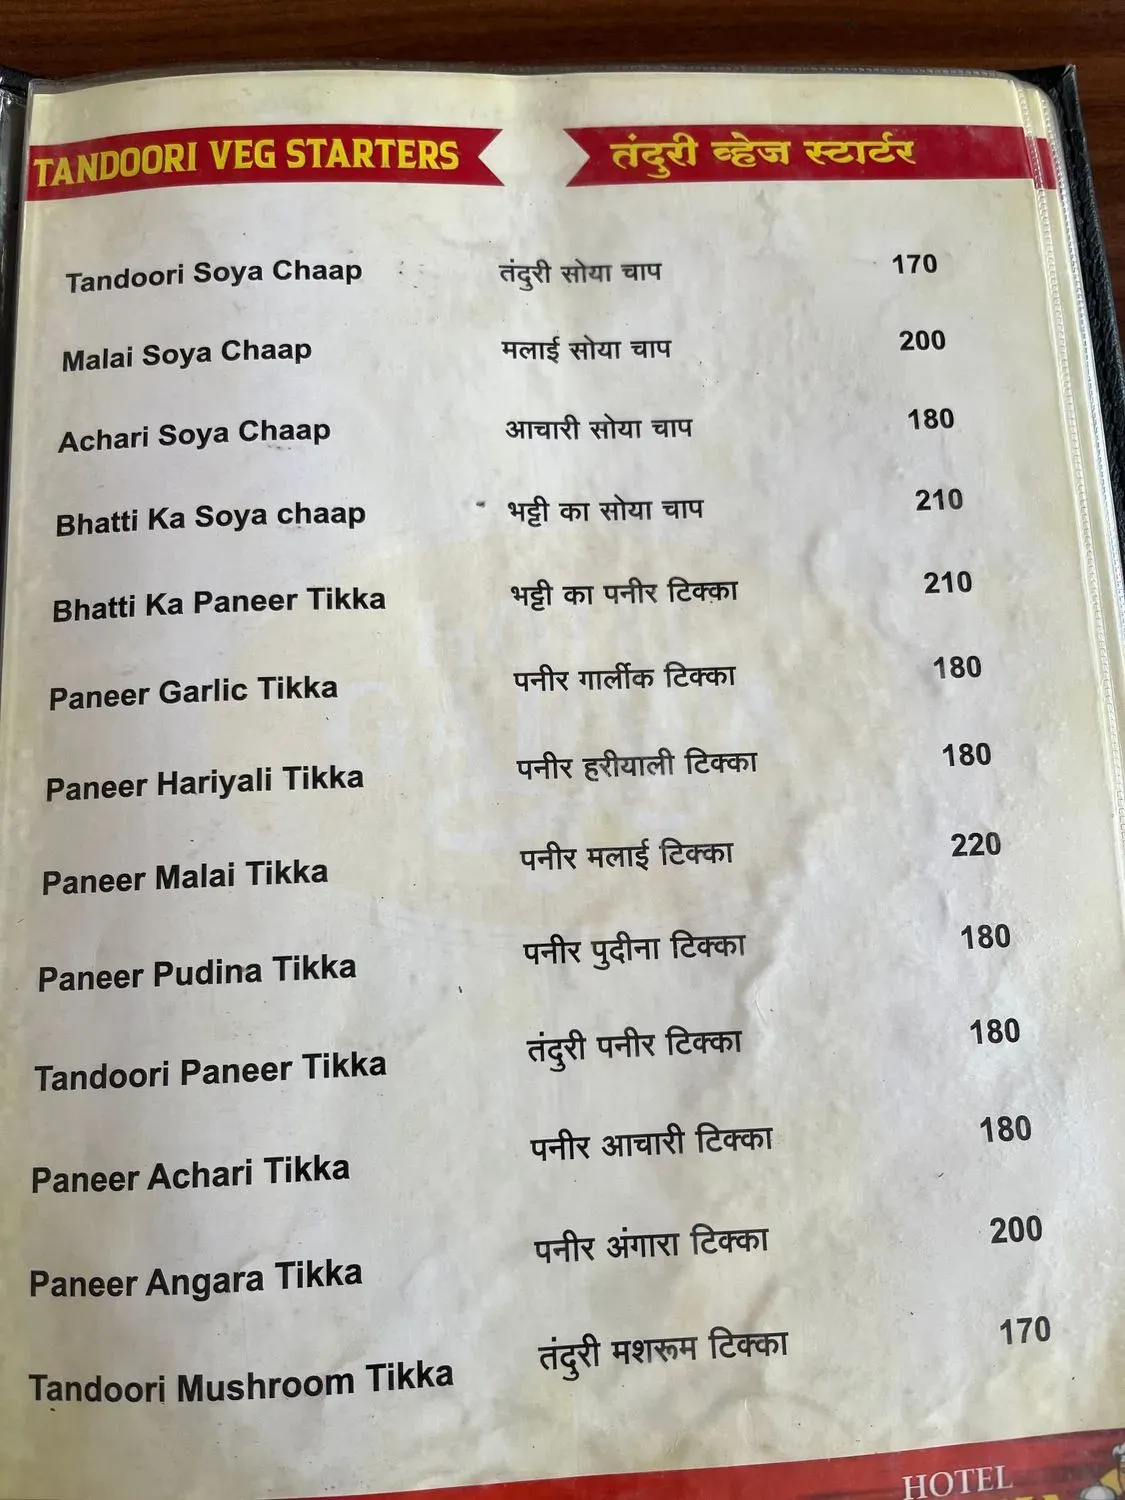 TANDOORI VEG STARTERS तंदुरी व्हेज स्टार्टर
Tandoori Soya Chaap तंदुरी सोया चाप 170
Malai Soya Chaap मलाई सोया चाप 200
Achari Soya Chaap आचारी सोया चाप 180
Bhatti Ka Soya chaap भट्टी का सोया चाप 210
Bhatti Ka Paneer Tikka भट्टी का पनीर टिक्का 210
Paneer Garlic Tikka पनीर गार्लीक टिक्का 180
Paneer Hariyali Tikka पनीर हरीयाली टिक्का 180
Paneer Malai Tikka पनीर मलाई टिक्का 220
Paneer Pudina Tikka पनीर पुदीना टिक्का 180
Tandoori Paneer Tikka तंदुरी पनीर टिक्का 180
Paneer Achari Tikka पनीर आचारी टिक्का 180
Paneer Angara Tikka पनीर अंगारा टिक्का 200
Tandoori Mushroom Tikka तंदुरी मशरूम टिक्का 170
HOTEL